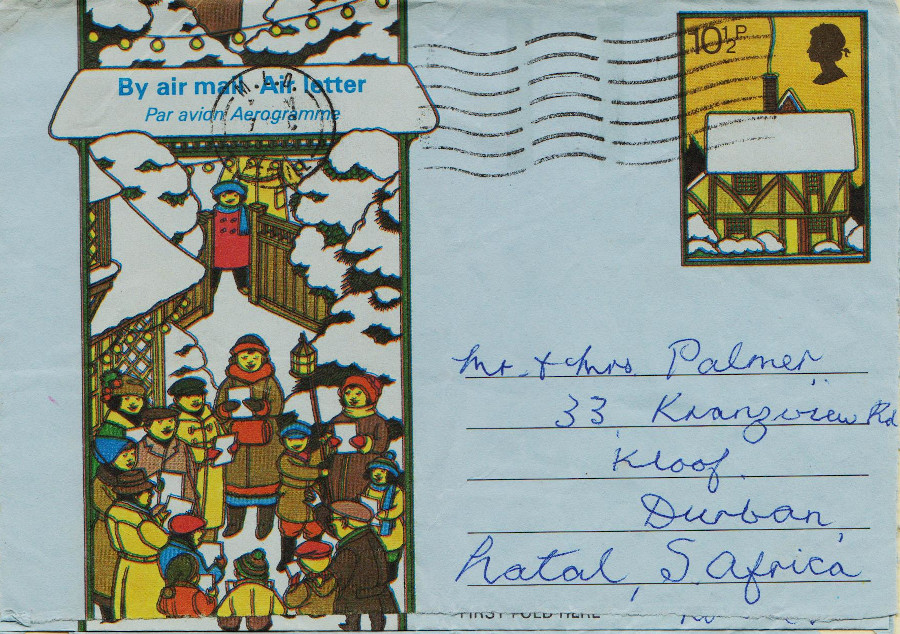 By air mail Air letter
Par avion Aerogramme
10½P
Mr & Mrs Palmer
33, Kranzview Rd
Kloof
Durban,
Natal, S Africa
FIRST FOLD HERE